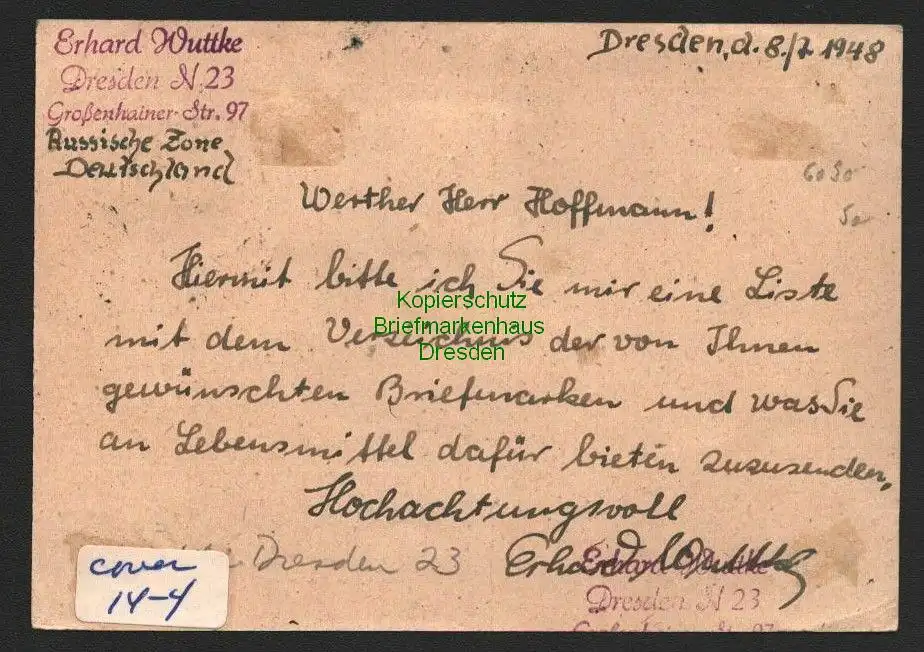 Erhard Wuttke
Dresden N 23
Großenhainer Str. 97
Russische Zone
Deutschland
Dresden, d. 8./7. 1948
60 30
50
Werther Herr Hoffmann!
Hiermit bitte ich Sie mir eine Liste
mit dem Verzeichnis der von Ihnen
gewünschten Briefmarken und was Sie
an Lebensmittel dafür bieten zuzusenden,
Hochachtungsvoll
Erhard Wuttke
Dresden 23
Erhard Wuttke
Dresden N 23
Großenhainer Str. 97
cover
14-4
Kopierschutz
Briefmarkenhaus
Dresden